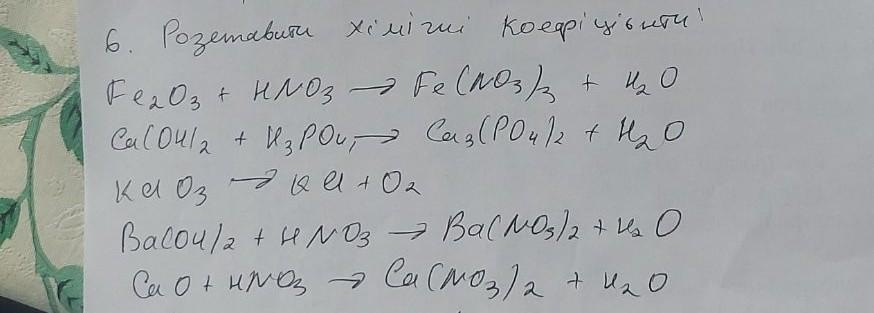 6. Розставити хімічні коефіцієнти!
Fe₂O₃ + HNO₃ → Fe(NO₃)₃ + H₂O
Ca(OH)₂ + H₃PO₄ → Ca₃(PO₄)₂ + H₂O
KClO₃ → KCl + O₂
Ba(OH)₂ + HNO₃ → Ba(NO₃)₂ + H₂O
CaO + HNO₃ → Ca(NO₃)₂ + H₂O